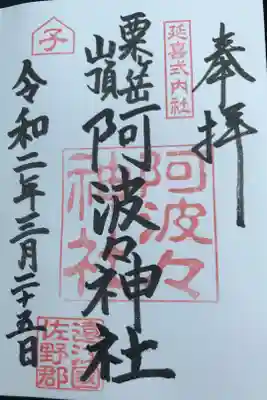 奉拝
延喜式内社
粟ヶ岳
山頂
阿波々神社
阿波々
神社
子
令和二年三月二十五日
遠江國
佐野郡